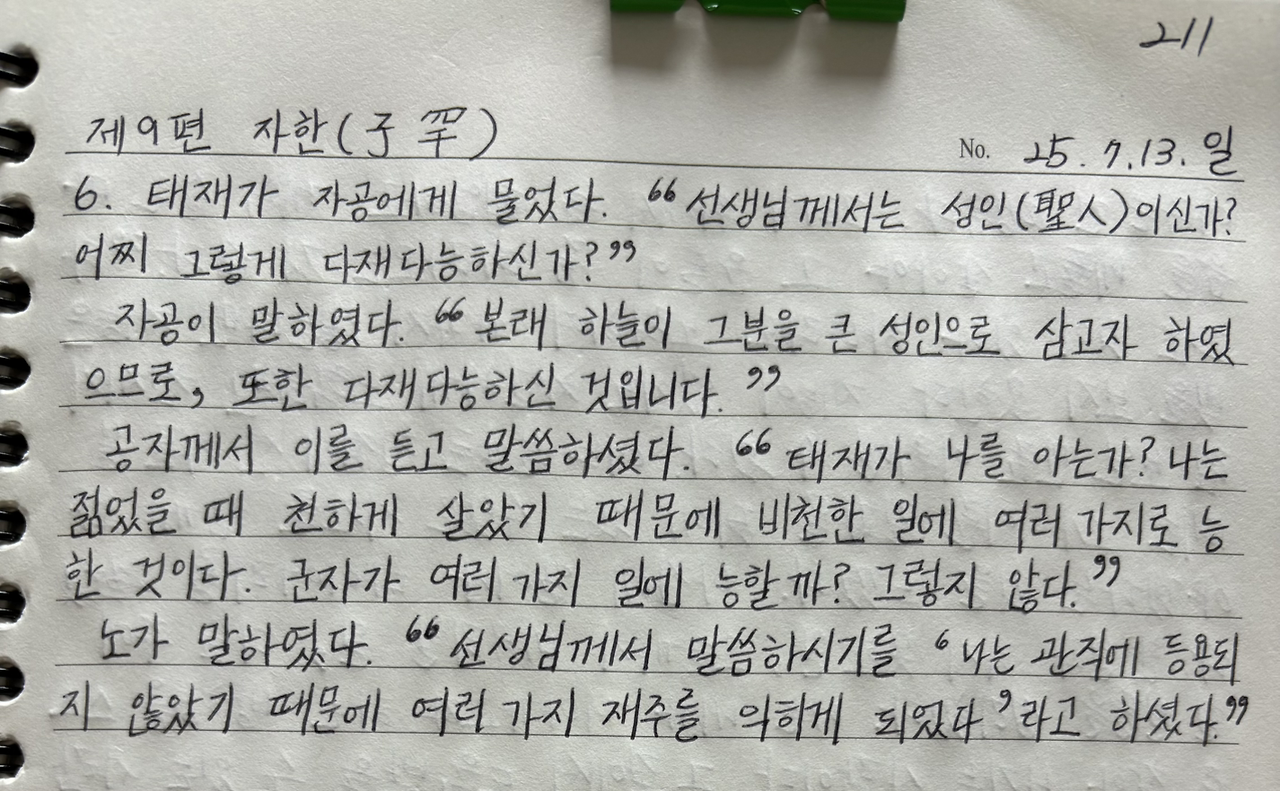 211
제9편 자한(子罕)
No. 25. 7. 13. 일
6. 태재가 자공에게 물었다. “선생님께서는 성인(聖人)이신가?
어찌 그렇게 다재다능하신가?”
자공이 말하였다. “본래 하늘이 그분을 큰 성인으로 삼고자 하였
으므로, 또한 다재다능하신 것입니다.”
공자께서 이를 듣고 말씀하셨다. “태재가 나를 아는가? 나는
젊었을 때 천하게 살았기 때문에 비천한 일에 여러 가지로 능
한 것이다. 군자가 여러 가지 일에 능할까? 그렇지 않다.”
노가 말하였다. “선생님께서 말씀하시기를 ‘나는 관직에 등용되
지 않았기 때문에 여러 가지 재주를 익히게 되었다’라고 하셨다.”